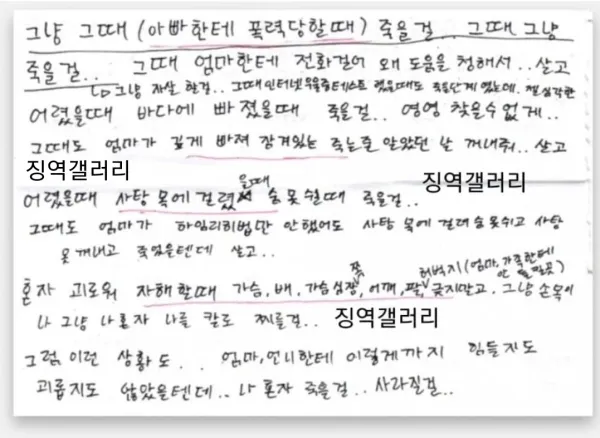 그냥 그때 (아빠한테 폭력당할때) 죽을걸.. 그때 그냥
죽을걸.. 그때 엄마한테 전화걸어 왜 도움을 청해서.. 살고
↳ 그냥 자살 할걸.. 그때 인터넷 우울증테스트 했을때도 죽음단계 였는데.. 젤 심각한
어렸을때 바다에 빠졌을때 죽을걸.. 영영 찾을수 없게..
그때도 엄마가 깊게 빠져 잠겨있는 죽는줄 알았던 날 꺼내줘.. 살고
징역갤러리
징역갤러리
어렸을때 사탕 목에 걸렸을때 숨 못쉴때 죽을걸..
그때도 엄마가 하임리히법만 안했어도 사탕 목에 걸려 숨못쉬고 사탕
못 꺼내고 죽었을텐데 살고..
혼자 괴로워 자해할때 가슴, 배, 가슴심장쪽, 어깨, 팔, 허벅지(엄마, 가족한테 안 곳) 긋지말고.. 그냥 손목이
나 그냥 나혼자 나를 칼로 찌를걸..
징역갤러리
그럼 이런 상황도.. 엄마, 언니한테 이렇게까지 힘들지도
괴롭지도 않았을텐데.. 나 혼자 죽을걸.. 사라질걸..